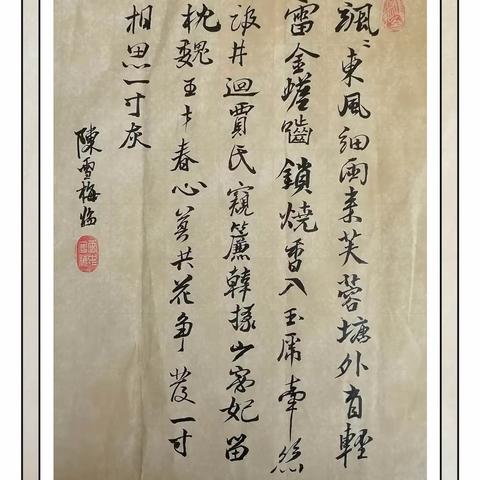 颯〻東風細雨來芙蓉塘外有輕
雷金蟾嚙鎖燒香入玉虎牽絲
汲井迴賈氏窺簾韓掾少宓妃留
枕魏王才春心莫共花爭發一寸
相思一寸灰
陳雪梅臨